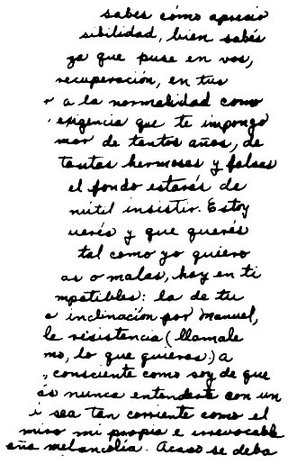 sabes cómo aprecio
sibilidad, bien sabés
za que puse en vos,
recuperación, en tus
r a la normalidad como
exigencia que te impongo
mor de tantos años, de
tantas hermosas y falsas
el fondo estarás de
nútil insistir. Estoy
uerés y que querés
tal como yo quiero
as o malas, hay en ti
mpatibles: la de tu
a inclinación por Manuel,
la resistencia (llamale
mo, lo que quieras) a
, consciente como soy de que
ás nunca entenderte con un
i sea tan corriente como el
miro mi propia e irrevocable
aña melancolía. Acaso se deba